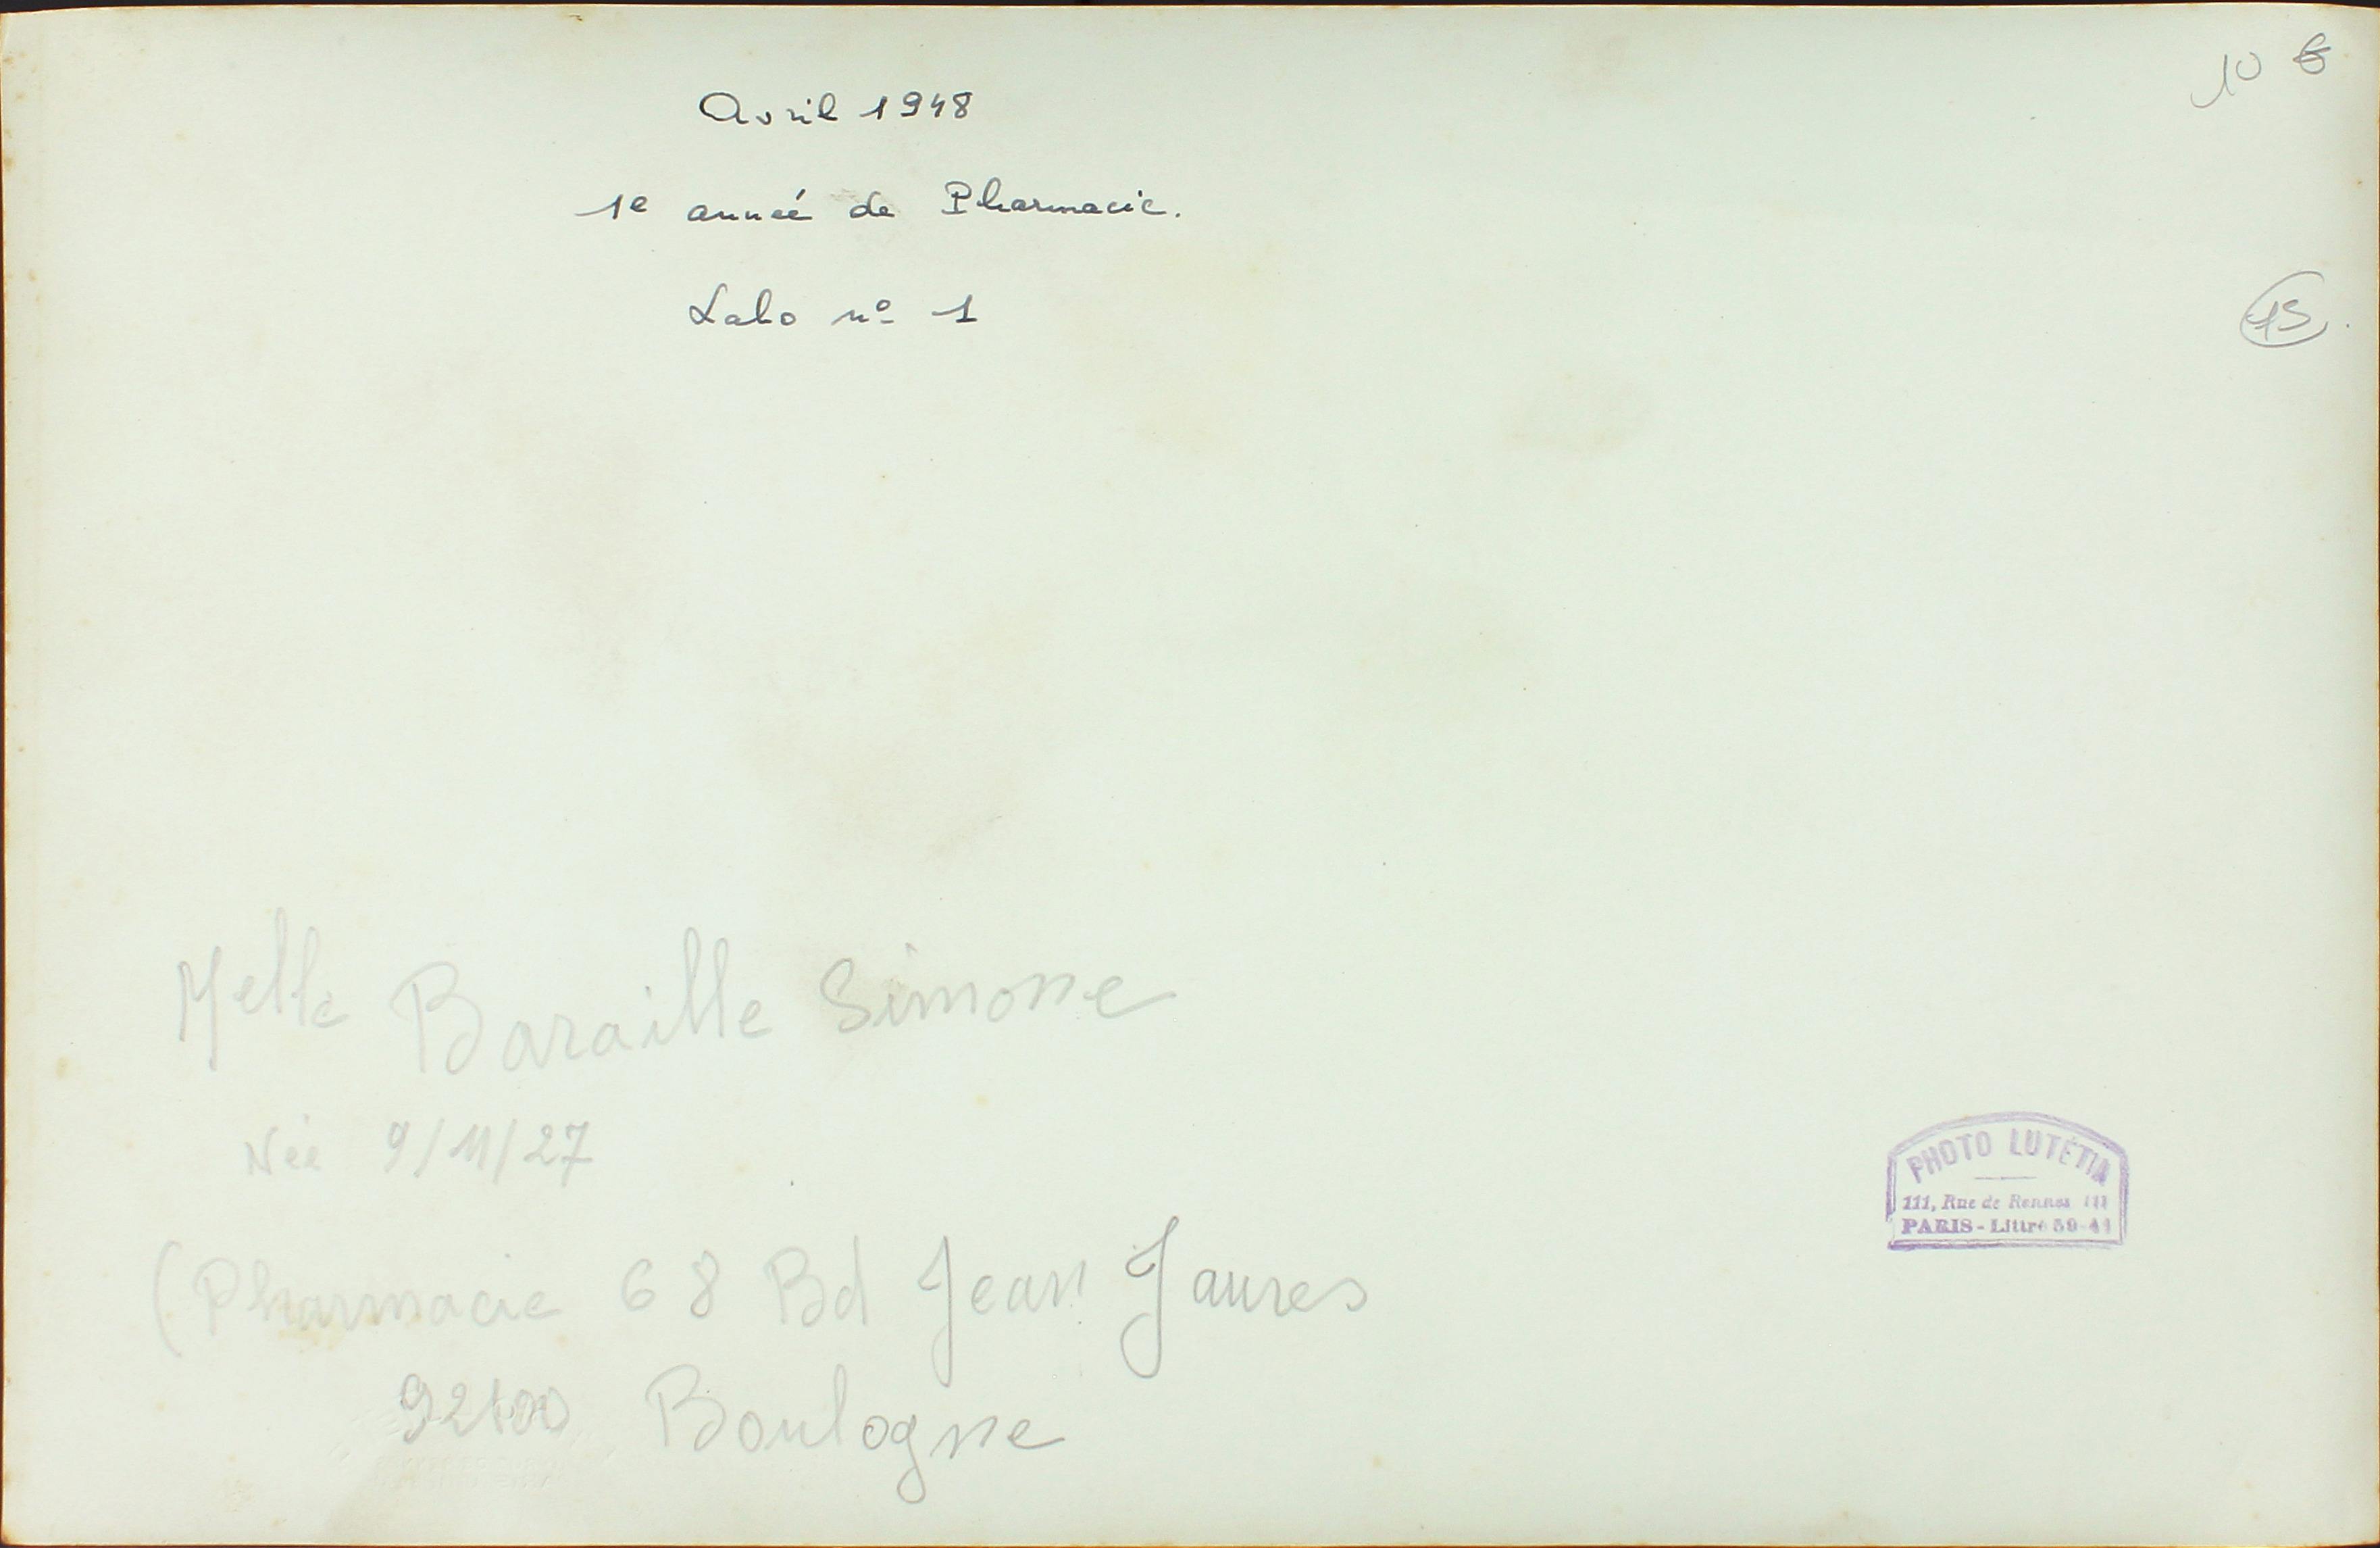 10 €
Avril 1948
1e année de Pharmacie.
15
Labo nº 1
Melle Baraille Simone
Née 9/11/27
(Pharmacie 68 Bd Jean Jaures
92100 Boulogne
PHOTO LUTÉTIA
111, Rue de Rennes 111
PARIS - Littré 59-41